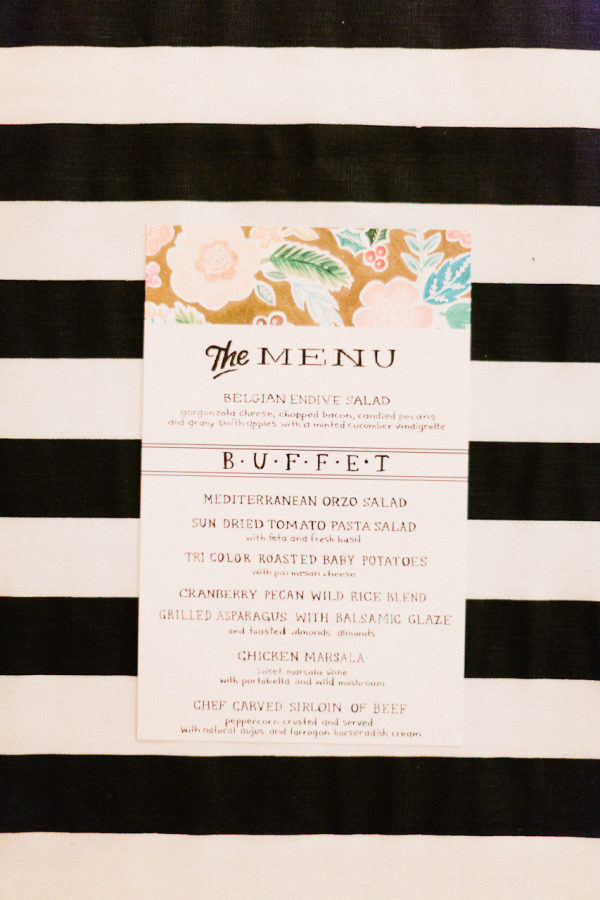 The MENU
BELGIAN ENDIVE SALAD
gorgonzola cheese, chopped bacon, candied pecans
and grany smith apples with a minted cucumber vindigrette
B·U·F·F·E·T
MEDITERRANEAN ORZO SALAD
SUN DRIED TOMATO PASTA SALAD
with feta and fresh basil
TRI COLOR ROASTED BABY POTATOES
with parmesan cheese
CRANBERRY PECAN WILD RICE BLEND
GRILLED ASPARAGUS WITH BALSAMIC GLAZE
and toasted almonds almonds
CHICKEN MARSALA
sweet marsala wine
with portabella and wild mushroom
CHEF CARVED SIRLOIN OF BEEF
peppercorn crusted and served
with natural aujus and tarragon horseradish cream